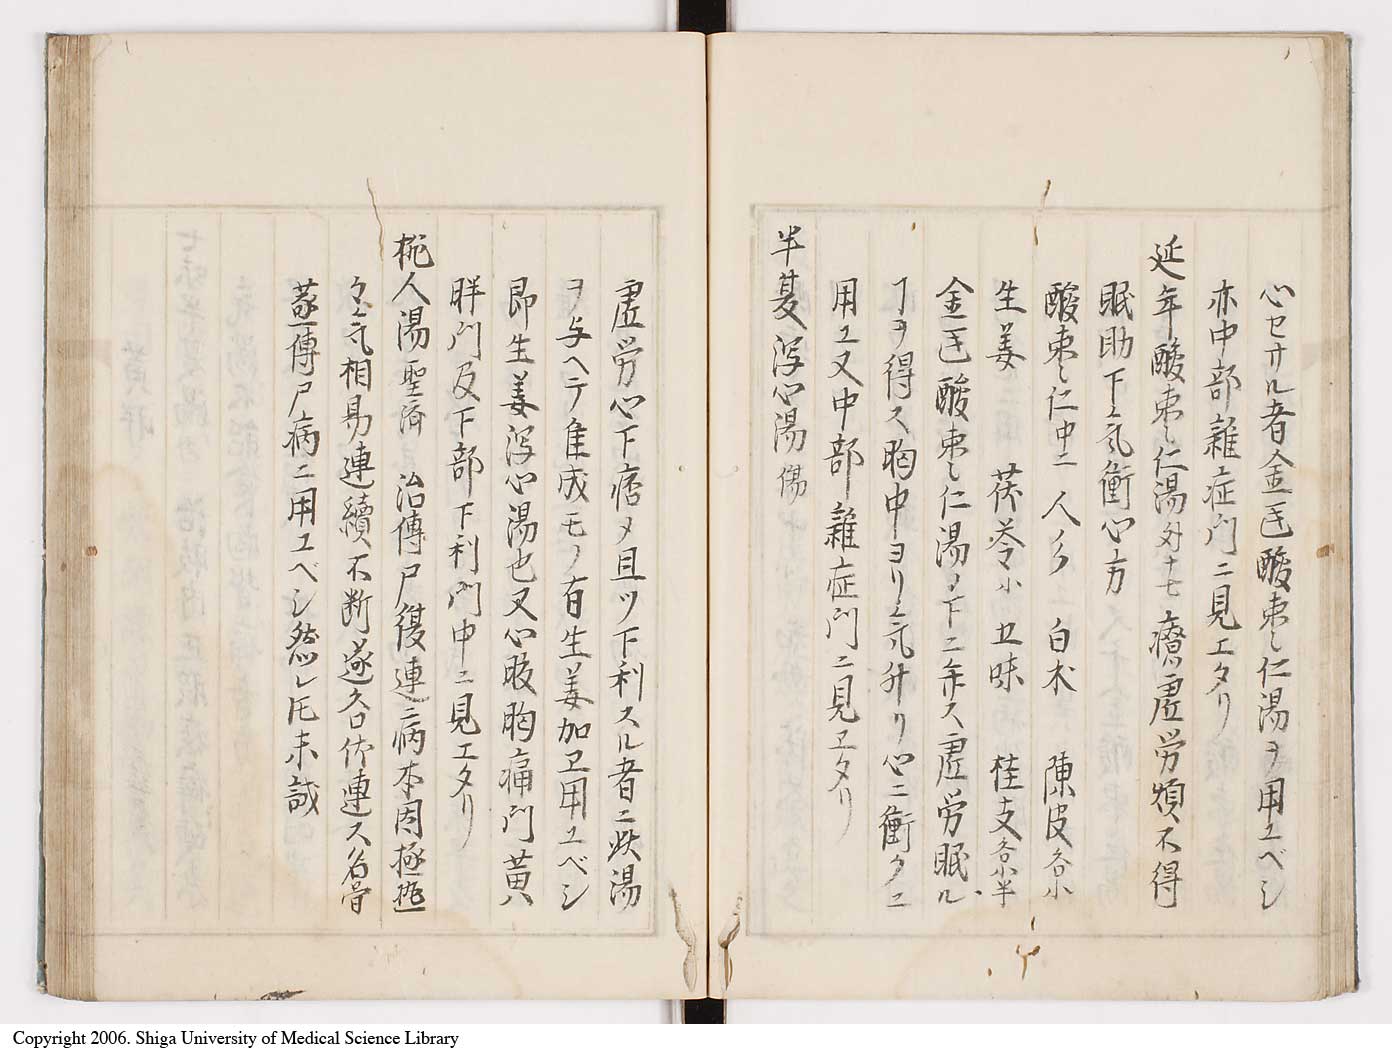 心セサル者金匱酸棗仁湯ヲ用ユベシ
亦中部雜症門ニ見エタリ
延年酸棗仁湯外十七療虚労煩不得
眠助下氣衝心方
酸棗仁中二 人參 白朮 陳皮各小
生姜 茯苓小 五味 桂支各小半
金匱酸棗仁湯ノ下ニ弁ス虚労眠ル
ヿヲ得ス胸中ヨリ氣升リ心ニ衝クニ
用ユ又中部雜症門ニ見エタリ
半夏瀉心湯傷
虚労心下痞メ且ツ下利スル者ニ此湯
ヲ与ヘテ隹成モノ有生姜加ヱ用ユベシ
即生姜瀉心湯也又心腹胸痛門黄
胖門及下部下利門中ニ見エタリ
桃人湯聖済 治傳尸復連病本因極
氣相易連續不断遂名伏連ス名骨
蒸傳尸病ニ用ユベシ然レ𪜈未試
Copyright 2006. Shiga University of Medical Science Library